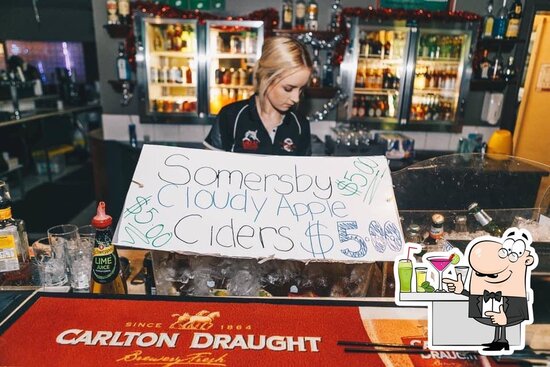 Somersby $5.00
Cloudy Apple
$5.00 Ciders $5.00
LIME
JUICE
SINCE 1864
CARLTON DRAUGHT
Brewery Fresh